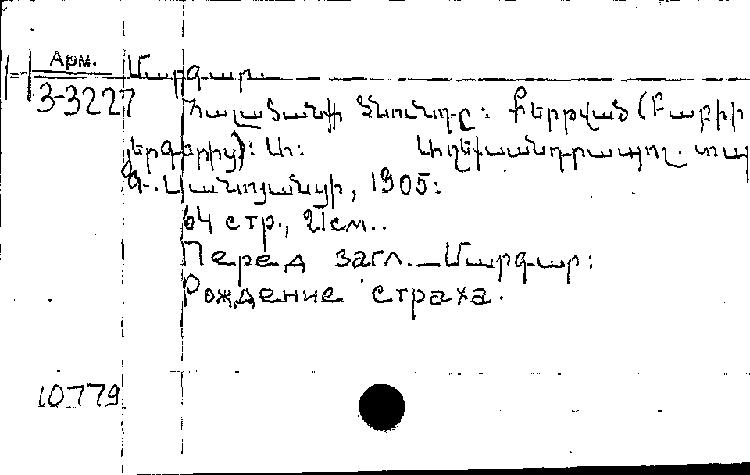 Арм.
Մարգար.
3-3227
ծնունդը: Քերթված (
յերգերից): Ա: Աղեքսանդրապոլ. տպ
Գ. Սանոյանցի, 1905:
64 стр., 21см..
Перед загл.—Մարգար:
Рождение страха.
10779